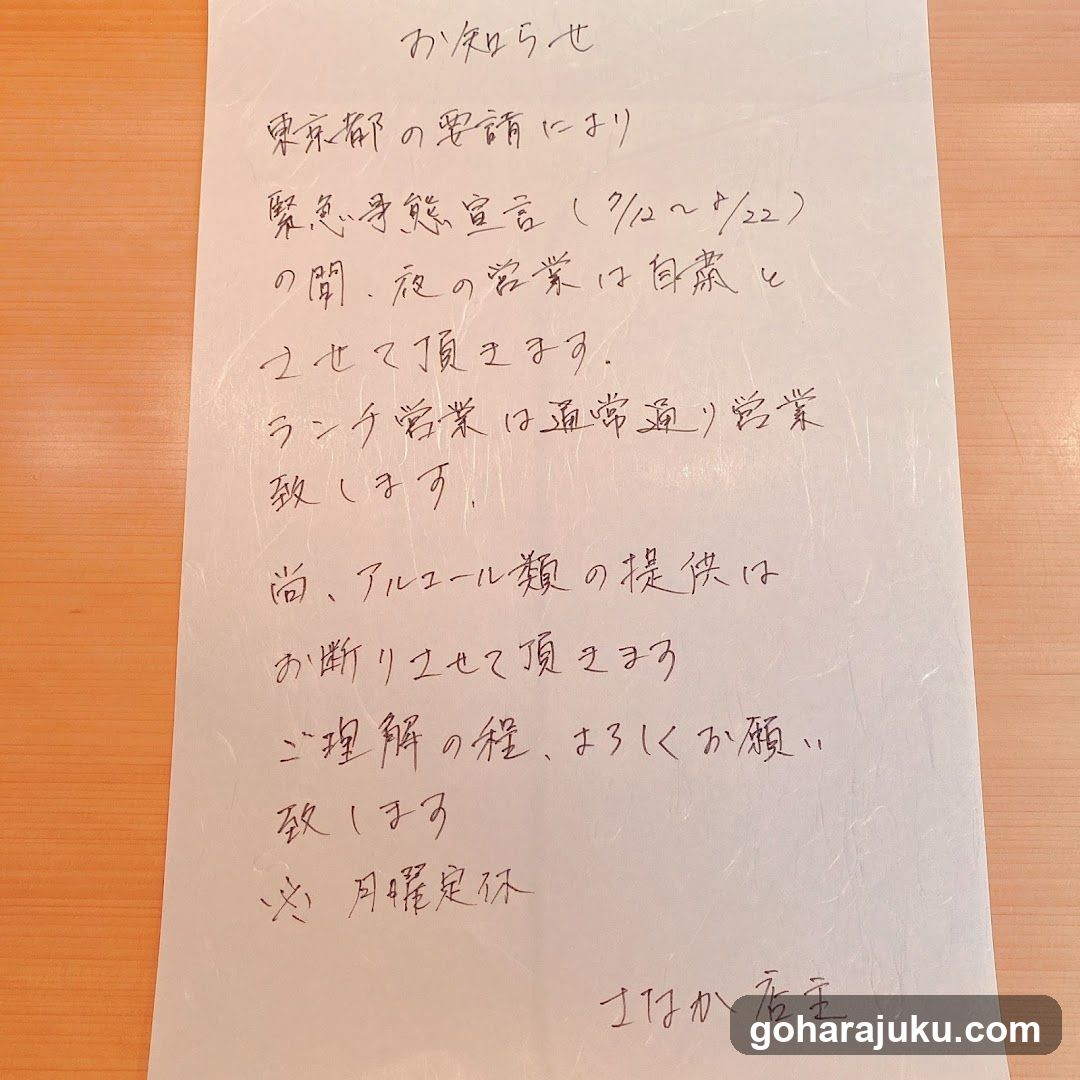 お知らせ
東京都の要請により
緊急事態宣言(7/12～8/22)
の間、夜の営業は自粛と
させて頂きます.
ランチ営業は通常通り営業
致します.
尚、アルコール類の提供は
お断りさせて頂きます
ご理解の程、よろしくお願い
致します
※ 月曜定休
さなか 店主
goharajuku.com